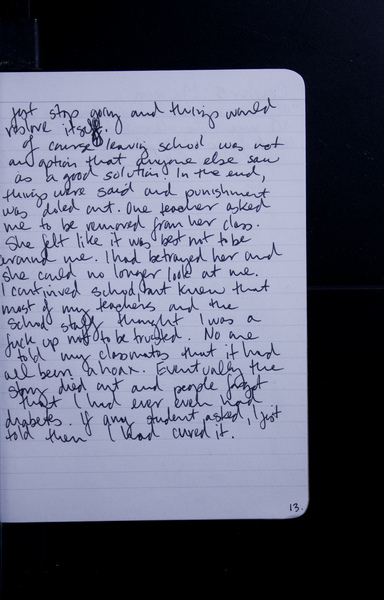 just stop going and things would
resolve itself.
Of course leaving school was not
an option that anyone else saw
as a good solution. In the end,
things were said and punishment
was doled out. One teacher asked
me to be removed from her class.
She felt like it was best not to be
around me. I had betrayed her and
she could no longer look at me.
I continued school, but knew that
most of my teachers and the
school staff thought I was a
fuck up not to be trusted. No one
told my classmates that it had
all been a hoax. Eventually the
story died out and people forgot
that I had ever even had
diabetes. If any student asked, I just
told them I had cured it.
13.